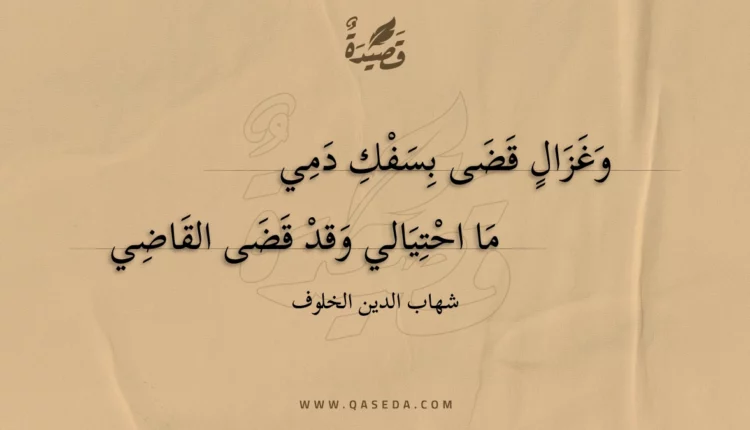 قَصِيدَةٌ
وَغَزَالٍ قَضَى بِسَفْكِ دَمِي
مَا احْتِيَالي وَقدْ قَضَى القَاضِي
شهاب الدين الخلوف
WWW.QASEDA.COM